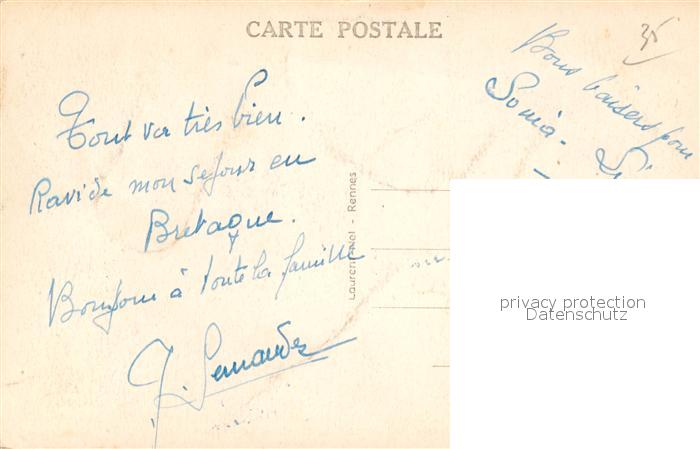 CARTE POSTALE
35
Tout va très bien.
Ravi de mon séjour en
Bretagne.
Bonjour à toute la famille
Bons baisers pour
Sonia -
Laurent-Nel - Rennes
privacy protection
Datenschutz